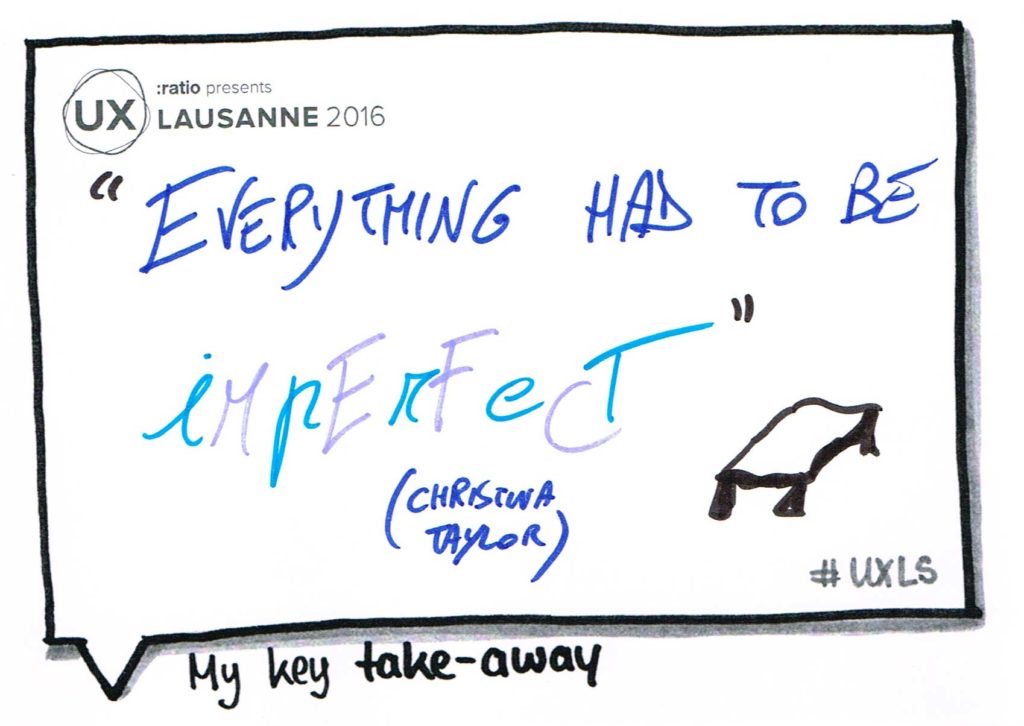 :ratio presents
UX LAUSANNE 2016
“ EVERYTHING HAD TO BE
iMpErFecT ”
(CHRISTINA
TAYLOR)
#UXLS
My key take-away